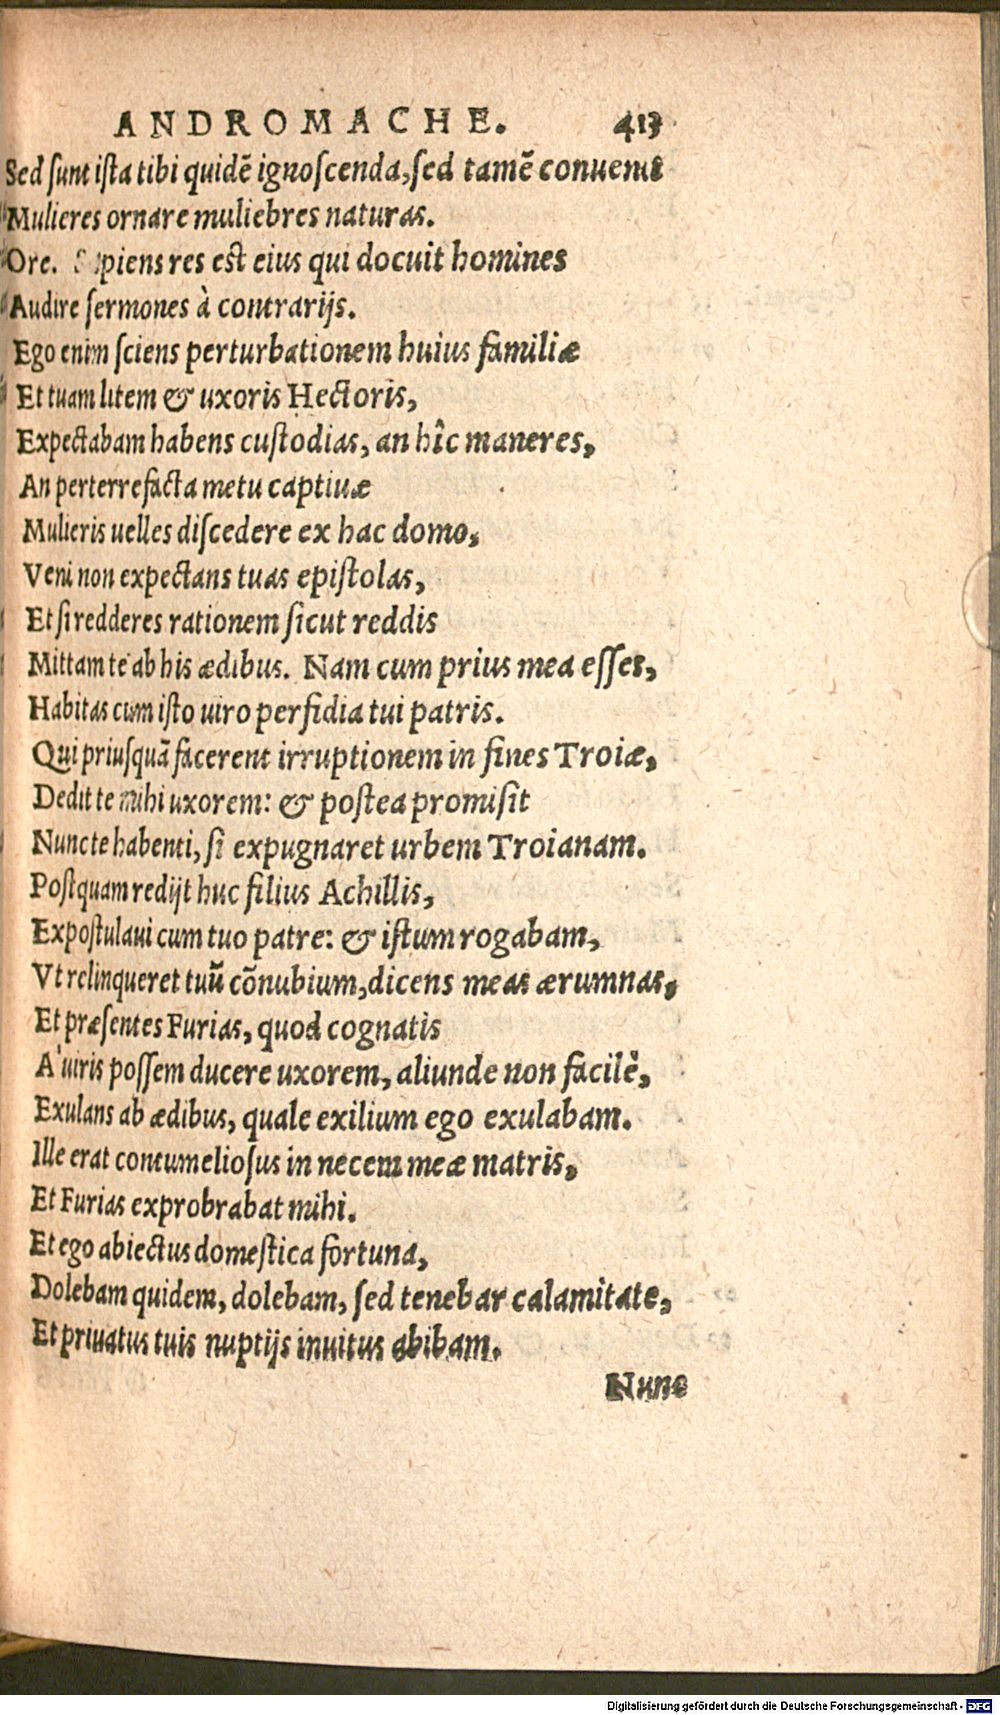 ANDROMACHE. 413
Sed sunt ista tibi quidẽ ignoscenda, sed tamẽ conuenit
Mulieres ornare muliebres naturas.
Ore. Sapiens res est eius qui docuit homines
Audire sermones à contrarijs.
Ego enim sciens perturbationem huius familiæ
Et tuam litem & uxoris Hectoris,
Expectabam habens custodias, an hîc maneres,
An perterrefacta metu captiuæ
Mulieris uelles discedere ex hac domo,
Veni non expectans tuas epistolas,
Et si redderes rationem sicut reddis
Mittam te ab his ædibus. Nam cum prius mea esses,
Habitas cum isto uiro perfidia tui patris.
Qui priusquã facerent irruptionem in fines Troiæ,
Dedit te mihi uxorem: & postea promisit
Nunc te habenti, si expugnaret urbem Troianam.
Postquam redijt huc filius Achillis,
Expostulaui cum tuo patre: & istum rogabam,
Vt relinqueret tuũ cõnubium, dicens meas ærumnas,
Et præsentes Furias, quod cognatis
A' uiris possem ducere uxorem, aliunde non facilè,
Exulans ab ædibus, quale exilium ego exulabam.
Ille erat contumeliosus in necem meæ matris,
Et Furias exprobrabat mihi.
Et ego abiectus domestica fortuna,
Dolebam quidem, dolebam, sed tenebar calamitate,
Et priuatus tuis nuptijs inuitus abibam.
Nunc
Digitalisierung gefördert durch die Deutsche Forschungsgemeinschaft - DFG